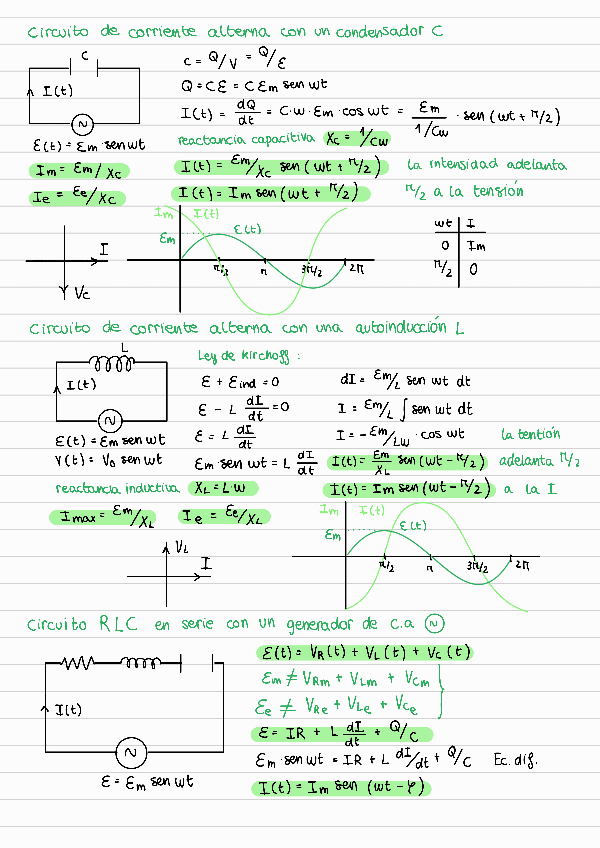 Circuito de corriente alterna con un condensador C
C
I(t)
~
ε(t) = εm · sen wt
Im = εm/Xc
Ie = εe/Xc
c = Q/V = Q/ε
Q = Cε = C εm sen wt
I(t) = dQ/dt = C·w·εm·cos wt = εm/(1/Cw) · sen (wt + π/2)
reactancia capacitiva Xc = 1/Cw
I(t) = εm/Xc sen (wt + π/2) la intensidad adelanta
I(t) = Im sen (wt + π/2) π/2 a la tensión
I
Vc
Im I(t)
εm ε(t)
π/2 π 3π/2 2π
wt I
0 Im
π/2 0
Circuito de corriente alterna con una autoinducción L
L
I(t)
~
ε(t) = εm sen wt
V(t) = V0 sen wt
Ley de Kirchoff:
ε + εind = 0
ε - L dI/dt = 0
ε = L dI/dt
εm sen wt = L dI/dt
dI = εm/L sen wt dt
I = εm/L ∫ sen wt dt
I = - εm/Lw · cos wt la tentión
I(t) = εm/XL sen (wt - π/2) adelanta π/2
I(t) = Im sen (wt - π/2) a la I
reactancia inductiva XL = L·w
Imax = εm/XL Ie = εe/XL
VL
I
Im I(t)
εm ε(t)
π/2 π 3π/2 2π
Circuito RLC en serie con un generador de c.a ~
I(t)
~
ε = εm sen wt
ε(t) = VR(t) + VL(t) + Vc(t)
εm ≠ VRm + VLm + VCm
εe ≠ VRe + VLe + VCe
ε = IR + L dI/dt + Q/C
εm · sen wt = IR + L dI/dt + Q/C Ec. dif.
I(t) = Im sen (wt - φ)